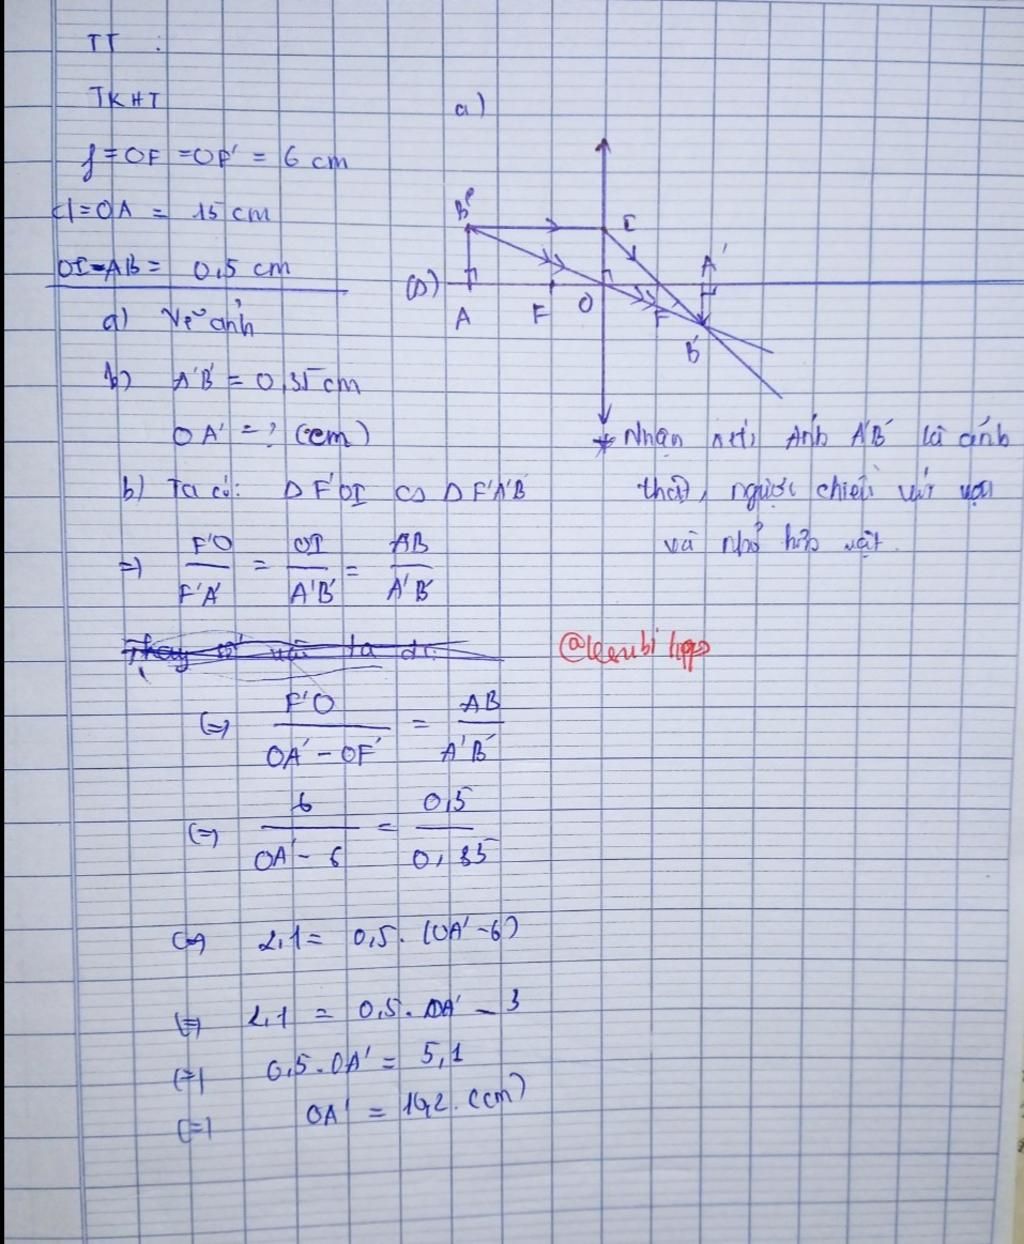 TT :
TKHT
f = OF = OF' = 6 cm
d = OA = 15 cm
OI = AB = 0,5 cm
a) Vẽ ảnh
b) A'B' = 0,35 cm
OA' = ? (cm)
a)
B
I
A'
(Δ)
A
F
O
F'
B'
* Nhận xét: Ảnh A'B' là ảnh
thật, ngược chiều với vật
và nhỏ hơn vật.
b) Ta có: Δ F'OI ∽ Δ F'A'B'
=> F'O/F'A' = OI/A'B' = AB/A'B'
Thay số vào ta đc
(=) F'O/OA' - OF' = AB/A'B'
(=) 6/OA' - 6 = 0,5/0,35
(=) 2,1 = 0,5. (OA' - 6)
(=) 2,1 = 0,5. OA' - 3
(=) 0,5. OA' = 5,1
(=) OA' = 10,2. (cm)